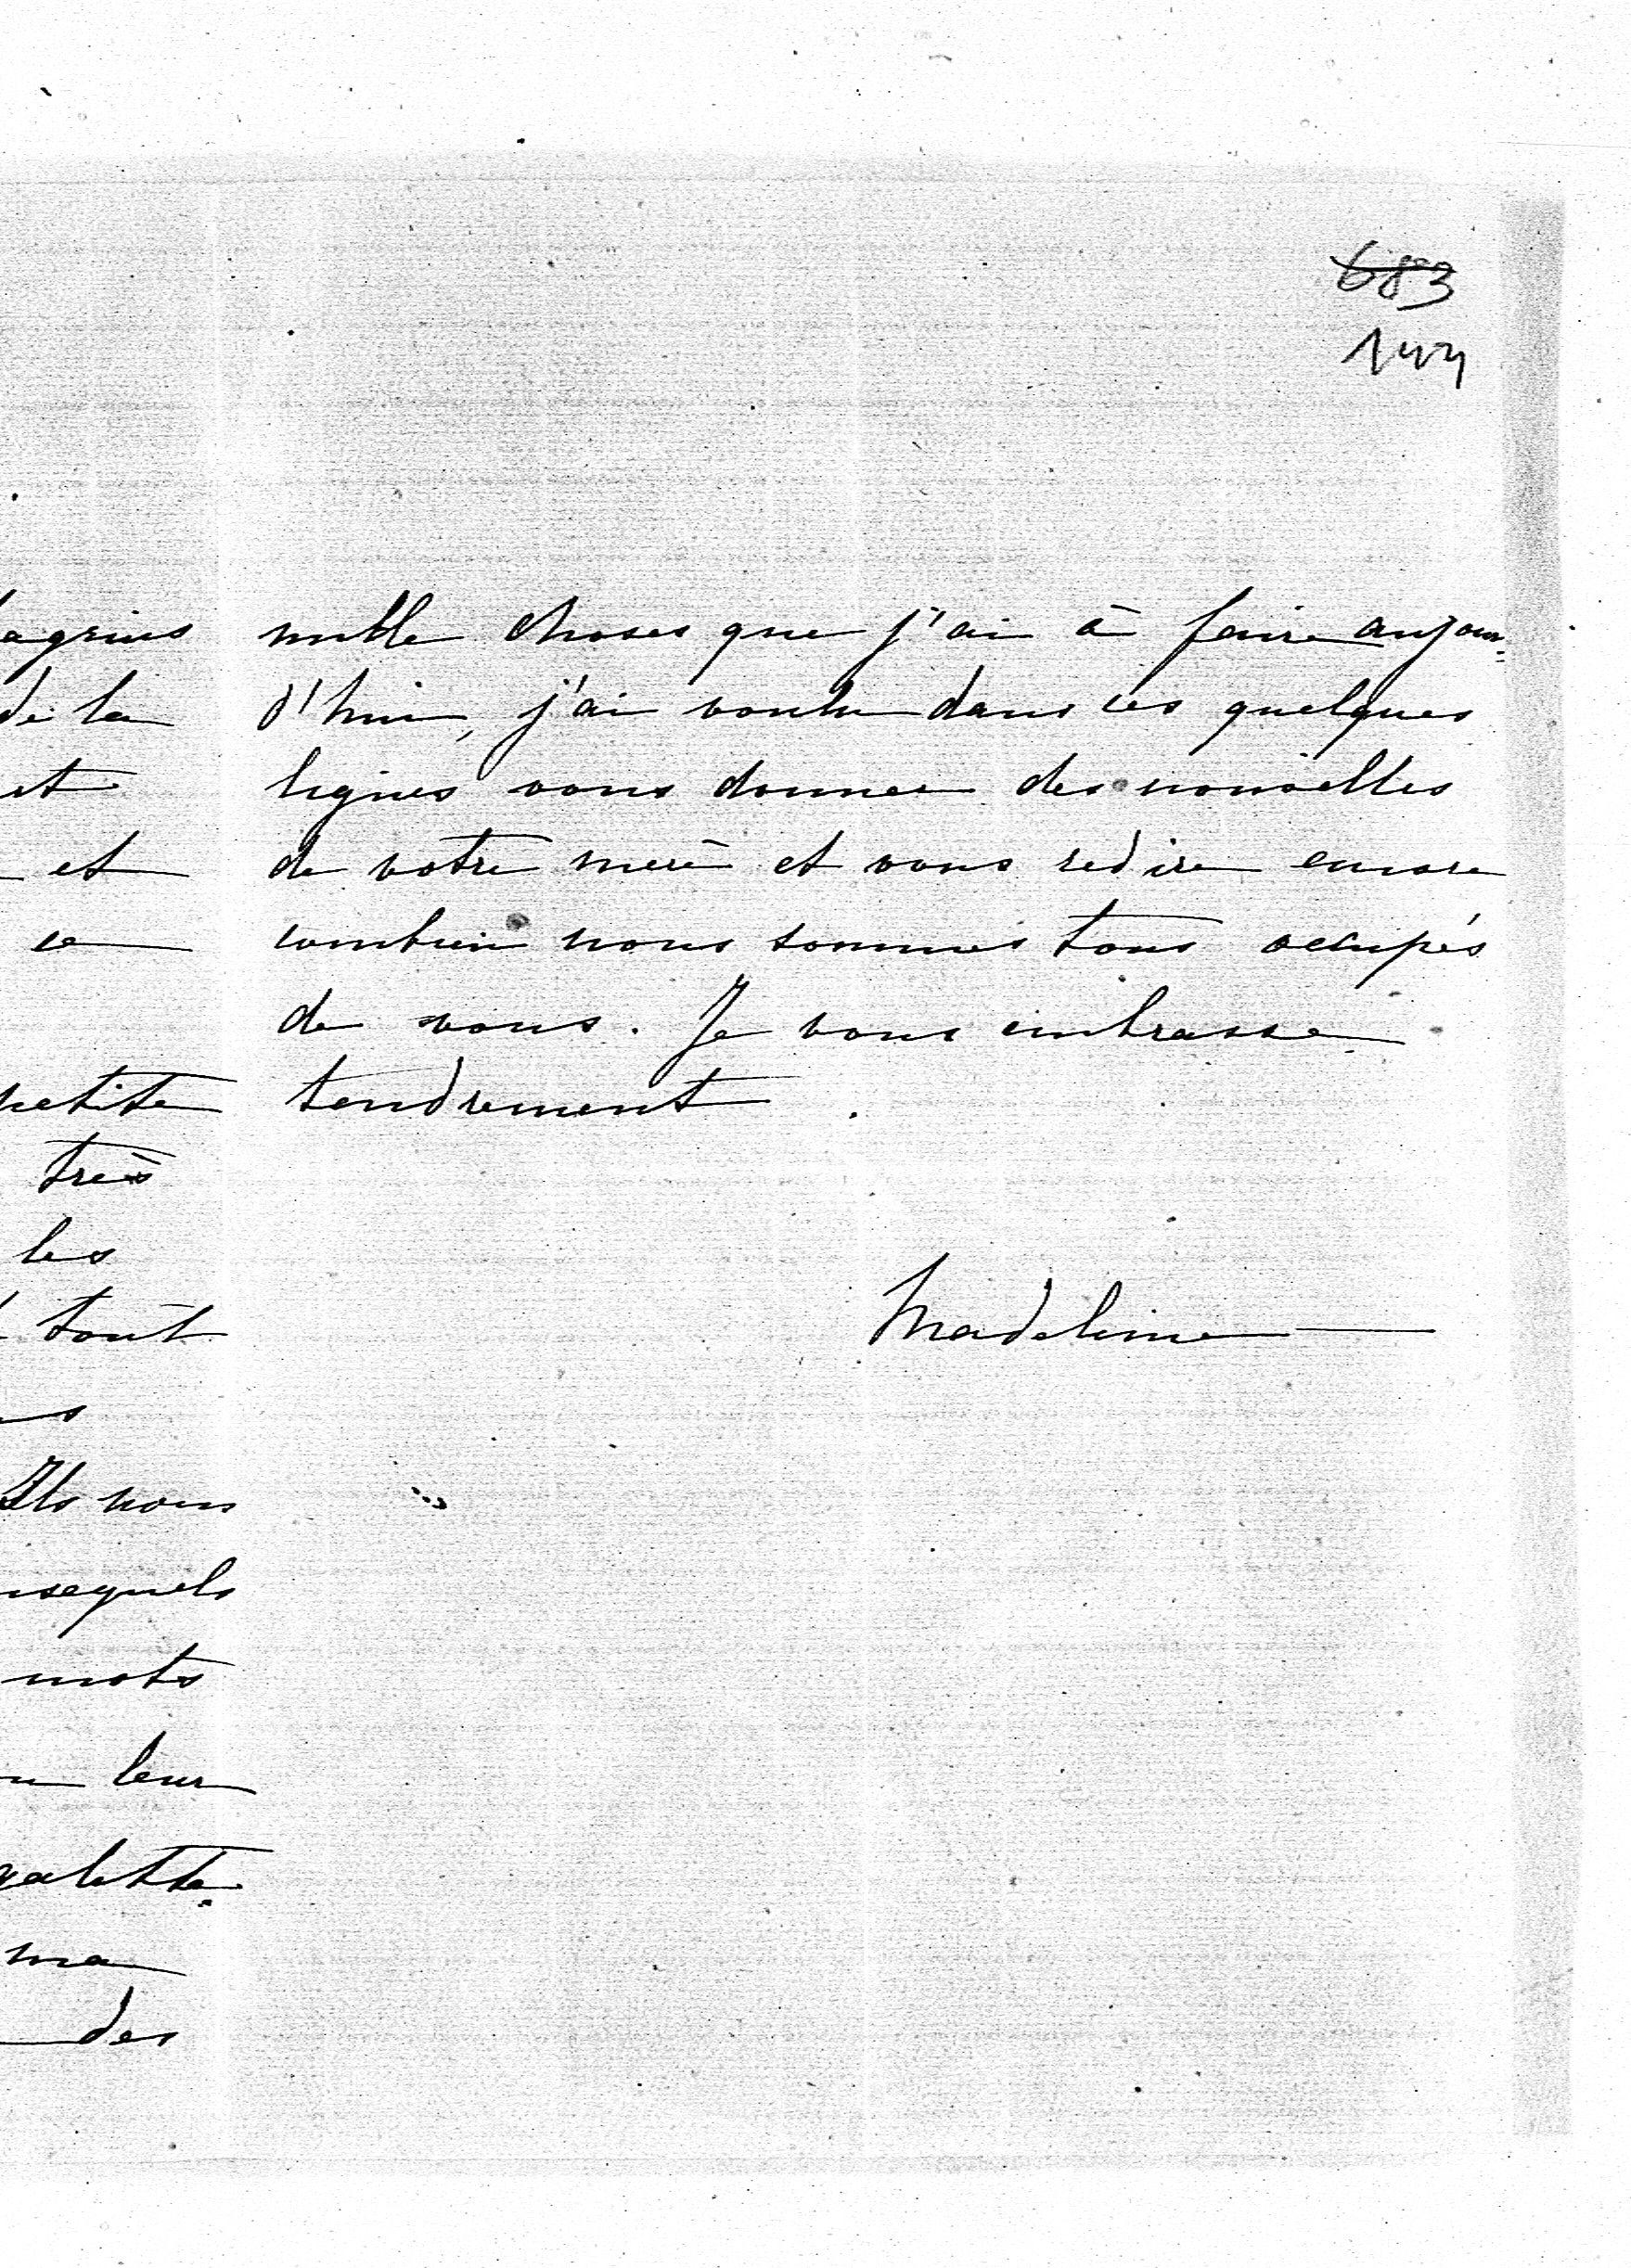 683
mille choses que j'ai à faire aujour=
d'hui, j'ai voulu dans ces quelques
lignes vous donner des nouvelles
de votre mère et vous redire encore
combien nous sommes tous occupés
de vous. Je vous embrasse
tendrement.
Madeleine
agrins
de la
et
et
ce
petite
très
les
tout
Ils nous
mots
leur
galette
ma
des